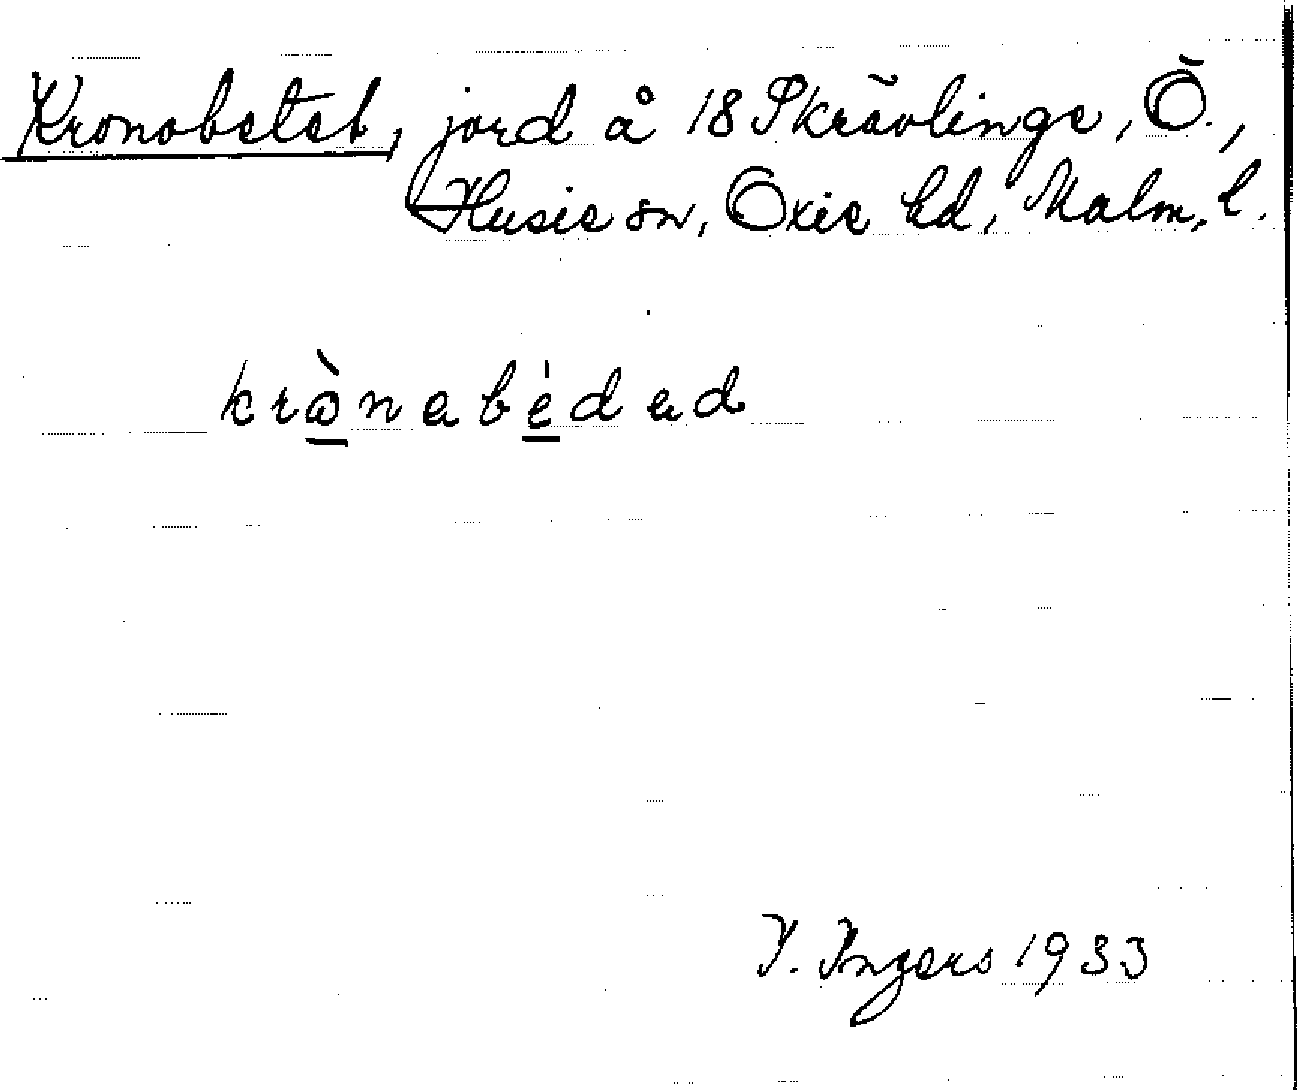 Kronobetet, jord å 18 Skrävlinge, Ö.,
Husie sn, Oxie hd, Malm. l.
krònabédad
I. Ingers 1933